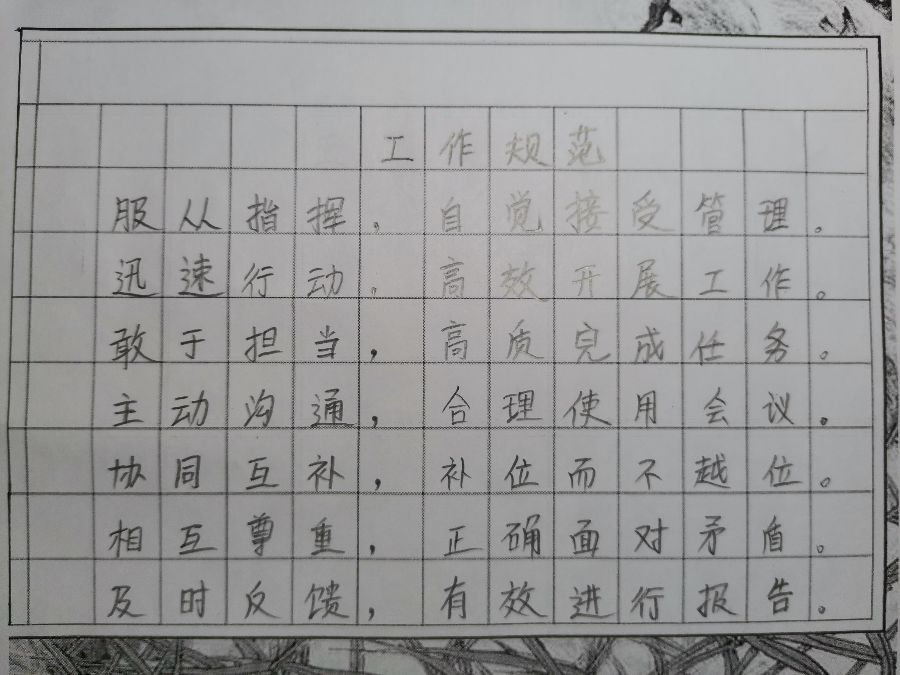 工作规范
服从指挥，自觉接受管理。
迅速行动，高效开展工作。
敢于担当，高质完成任务。
主动沟通，合理使用会议。
协同互补，补位而不越位。
相互尊重，正确面对矛盾。
及时反馈，有效进行报告。